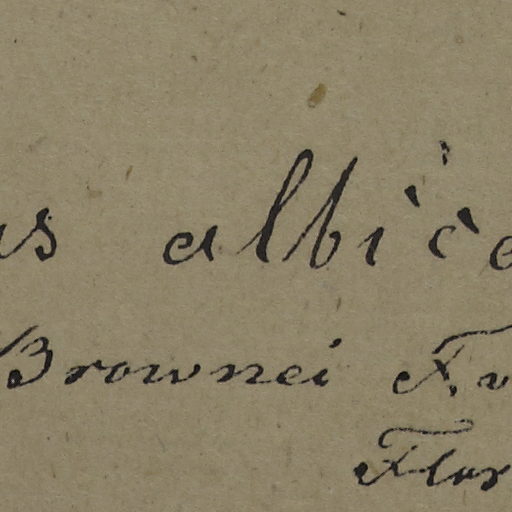 us albica
Brownei F. v
Flor